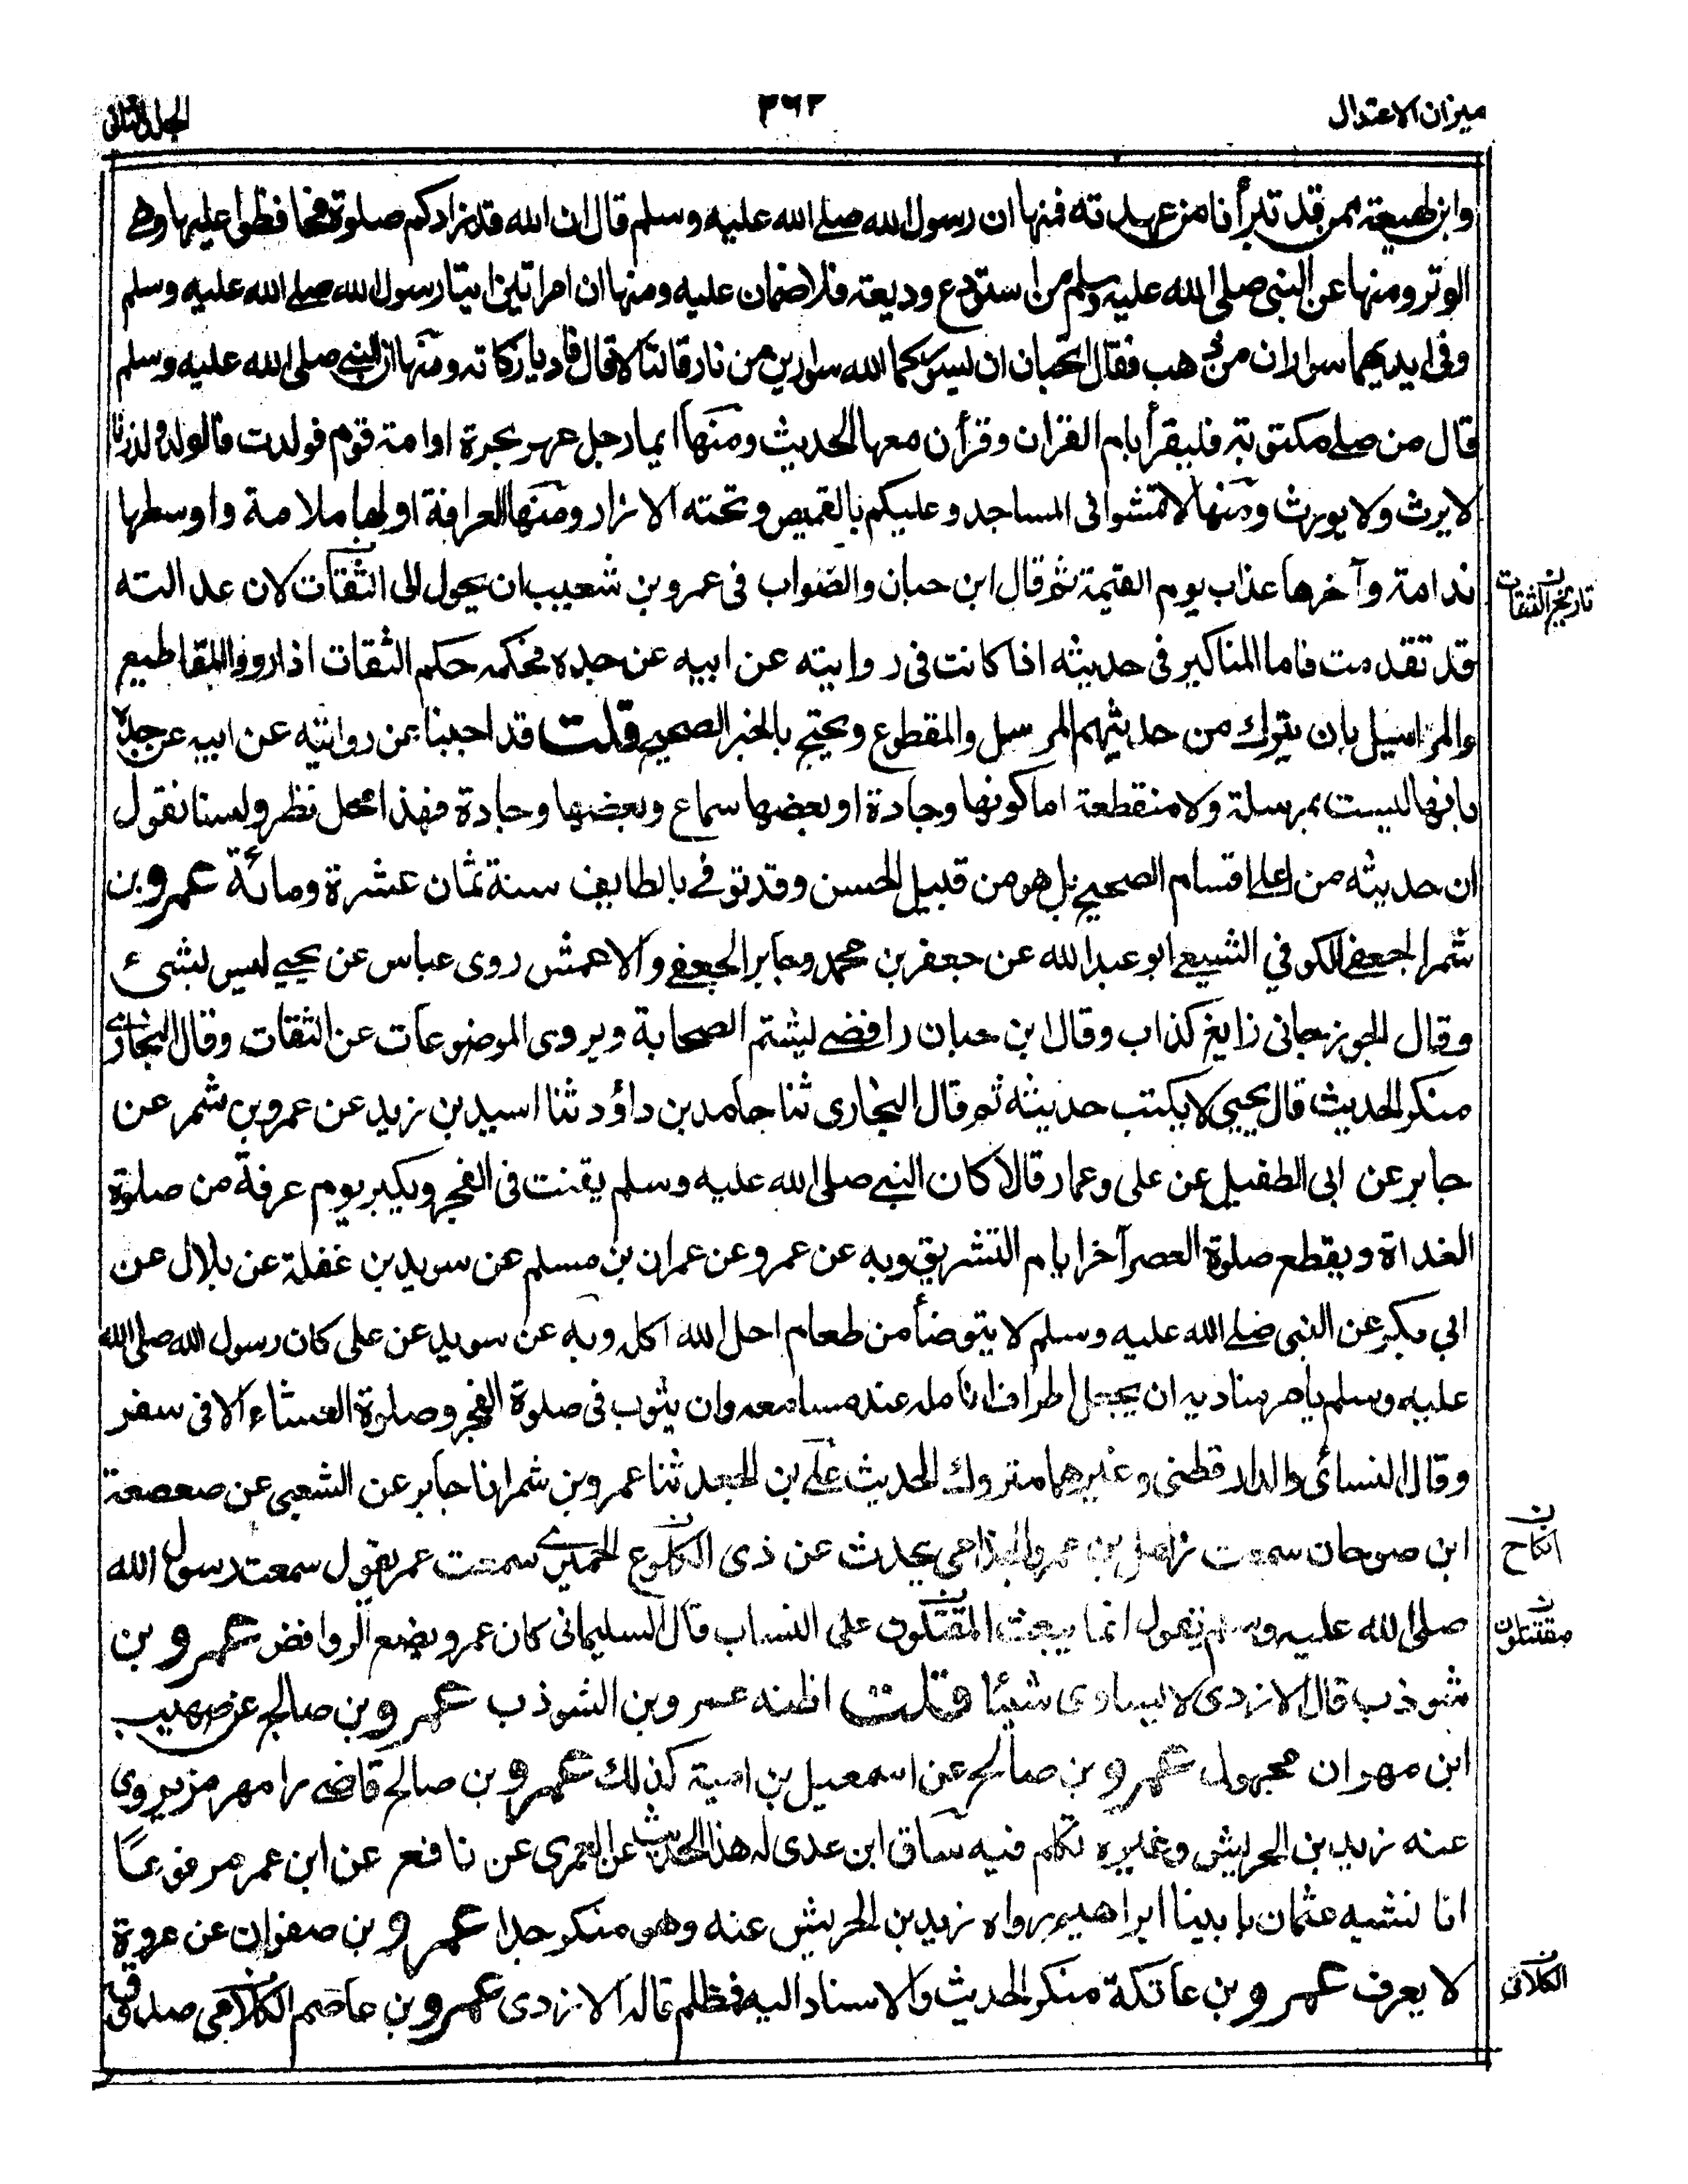 ميزان الاعتدال
٢٦٢
الجلد الثانى
وابن لهيعة ممن قد تبرأنا من عهدته فمنها ان رسول الله صلے الله عليه وسلم قال ان الله قد زادكم صلوة فحافظوا عليها وهى
الوتر ومنها عن النبى صلى الله عليه وسلم من استودع وديعة فلا ضمان عليه ومنها ان امراتين اتيتا رسول الله صلے الله عليه وسلم
وفى ايديهما سواران من ذهب فقال اتحبان ان يسوركما الله سوارين من نار قالتا لا قال فاديا زكاته ومنها ان النبى صلى الله عليه وسلم
قال من صلے مكتوبة فليقرأ بام القران وقرأن معها الحديث ومنها ايما رجل عهر بحرة او امة قوم فولدت فالولد ولد زنا
لا يرث ولا يورث ومنها لا تمشوا فى المساجد وعليكم بالقميص وتحته الازار ومنها العرافة اولها ملامة واوسطها
ندامة وآخرها عذاب يوم القيمة ثم قال ابن حبان والصواب فى عمرو بن شعيب ان يحول الى الثقات لان عدالته
قد تقدمت فاما المناكير فى حديثه اذا كانت فى روايته عن ابيه عن جده فحكمه حكم الثقات اذا رووا المقاطيع
والمراسيل بان يترك من حديثهم المرسل والمقطوع ويحتج بالخبر الصحيح قلت قد اجبنا عن روايته عن ابيه عن جده
بانها ليست بمرسلة ولا منقطعة اما كونها وجادة او بعضها سماع وبعضها وجادة فهذا محل نظر ولسنا نقول
ان حديثه من اعلى اقسام الصحيح بل هو من قبيل الحسن وقد توفے بالطايف سنة ثمان عشرة ومائة عمرو بن
شمر الجعفے الكوفي الشيعے ابو عبد الله عن جعفر بن محمد وجابر الجعفے والاعمش روى عباس عن يحيے ليس بشىء
وقال الجوزجانى زايغ كذاب وقال ابن حبان رافضے يشتم الصحابة ويروى الموضوعات عن الثقات وقال البخارے
منكر الحديث قال يحيى لا يكتب حديثه ثم قال البخارى ثنا حامد بن داؤد ثنا اسيد بن زيد عن عمرو بن شمر عن
جابر عن ابى الطفيل عن على وعمار قالا كان النبے صلى الله عليه وسلم يقنت فى الفجر ويكبر يوم عرفة من صلوة
الغداة ويقطع صلوة العصر آخر ايام التشريق وبه عن عمرو عن عمران بن مسلم عن سويد بن غفلة عن بلال عن
ابي بكر عن النبى صلے الله عليه وسلم لا يتوضأ من طعام احل الله اكله وبه عن سويد عن على كان رسول الله صلى الله
عليه وسلم يامر مناديه ان يجعل اطراف انامله عند مسامعه وان يثوب فى صلوة الفجر وصلوة العشاء الا فى سفر
وقال النسائى والدارقطنى وغيرهما متروك الحديث على بن الجعد ثنا عمرو بن شمر انا جابر عن الشعبى عن صعصعة
ابن صوحان سمعت زامل بن عمرو الجذامى يحدث عن ذى الكلاع الحميرے سمعت عمر يقول سمعت رسول الله
صلى الله عليه وسلم يقول انما يبعث المقتتلون على النيات قال السليمانى كان عمرو يضع للروافض عمرو بن
شوذب قال الازدى لا يساوى شيئا قلت اظنه عمرو بن الشوذب عمرو بن صالح عن صهيب
ابن مهران مجهول عمرو بن صالح عن اسمعيل بن امية كذلك عمرو بن صالح قاضے رامهرمز يروى
عنه زيد بن الحريش وغيره تكلم فيه ساق ابن عدى له هذا الحديث عن العمرى عن نافع عن ابن عمر مرفوعًا
انا نشبه عثمان بابينا ابراهيم رواه زيد بن الحريش عنه وهو منكر جدا عمرو بن صفوان عن عروة
لا يعرف عمرو بن عاتكة منكر الحديث والاسناد اليه مظلم قاله الازدى عمرو بن عاصم الكلابى صدوق
تاريخ الثقات
مقتتلون
الكلابى